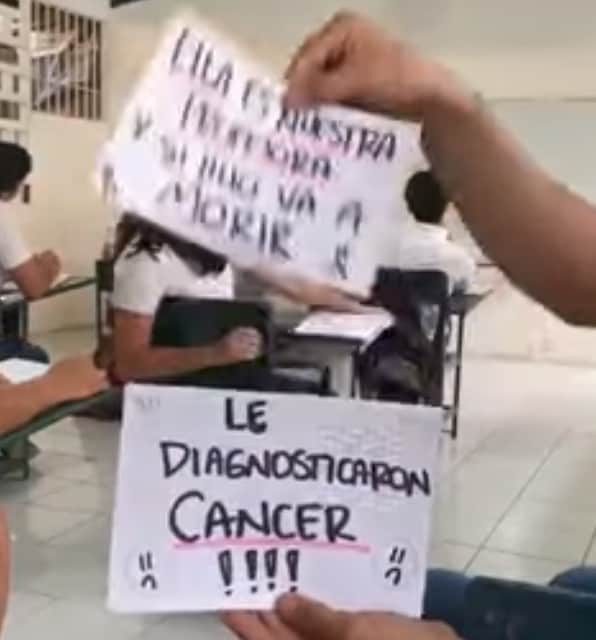 ELLA ES NUESTRA
PROFESORA
Y SU HIJO VA A
MORIR
LE
DIAGNOSTICARON
CANCER
!!!!